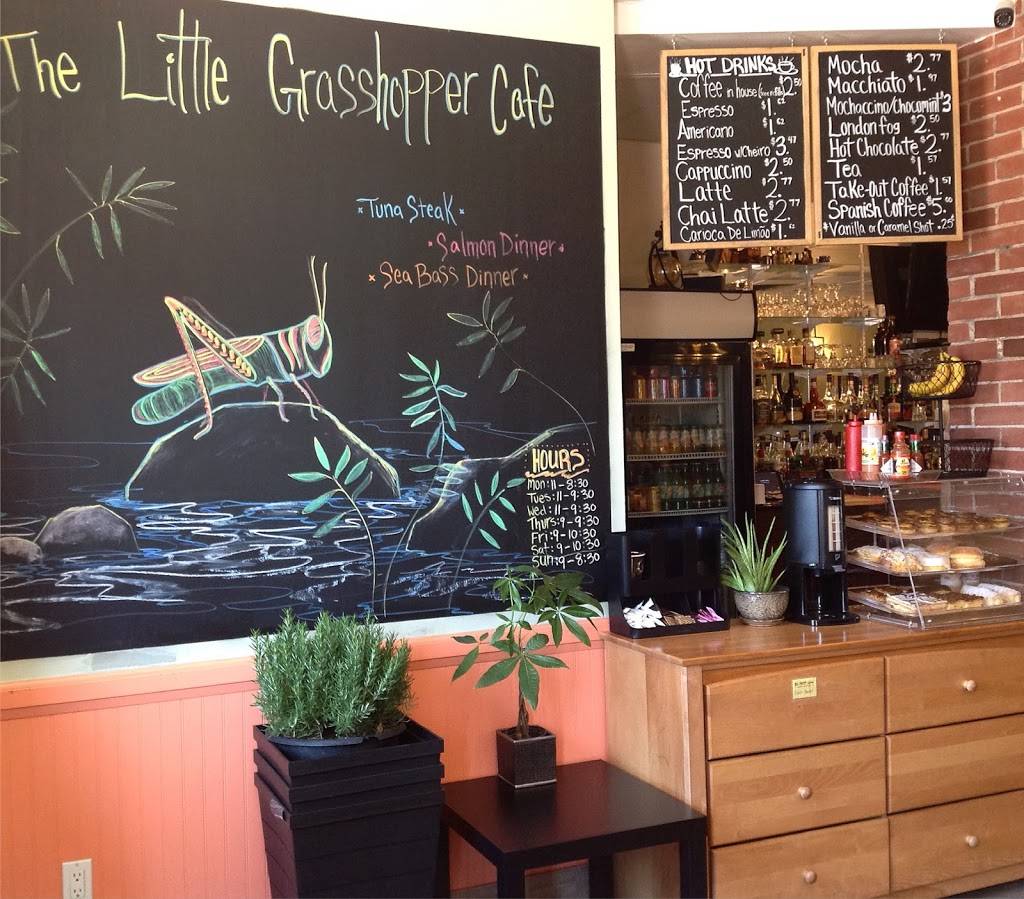 The Little Grasshopper Cafe
*Tuna Steak*
*Salmon Dinner*
*Sea Bass Dinner*
HOURS
Mon: 11-8:30
Tues: 11-9:30
Wed: 11-9:30
Thurs: 9-9:30
Fri: 9-10:30
Sat: 9-10:30
Sun: 9-8:30
HOT DRINKS
Coffee in house $2.50
Espresso $1.62
Americano $1.62
Espresso w/Cheiro $3.47
Cappuccino $2.50
Latte $2.77
Chai Latte $2.77
Carioca De Limão $1.
Mocha $2.77
Macchiato $1.97
Mochaccino/Chocomint $3
London fog $2.50
Hot Chocolate $2.77
Tea $1.57
Take-Out Coffee $1.57
Spanish Coffee $5.00
*Vanilla or Caramel Shot .25¢